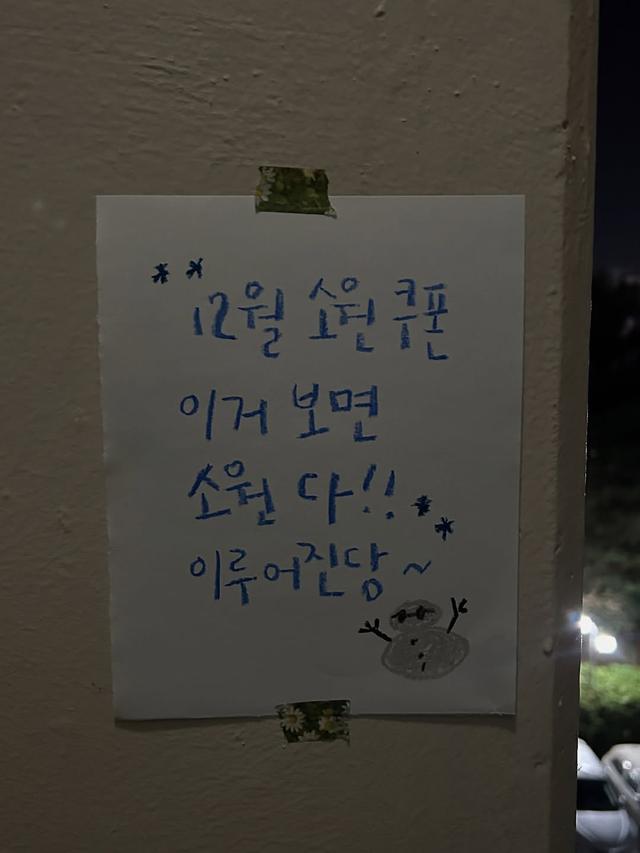 ** 12월 소원 쿠폰
이거 보면
소원 다!! **
이루어진당~